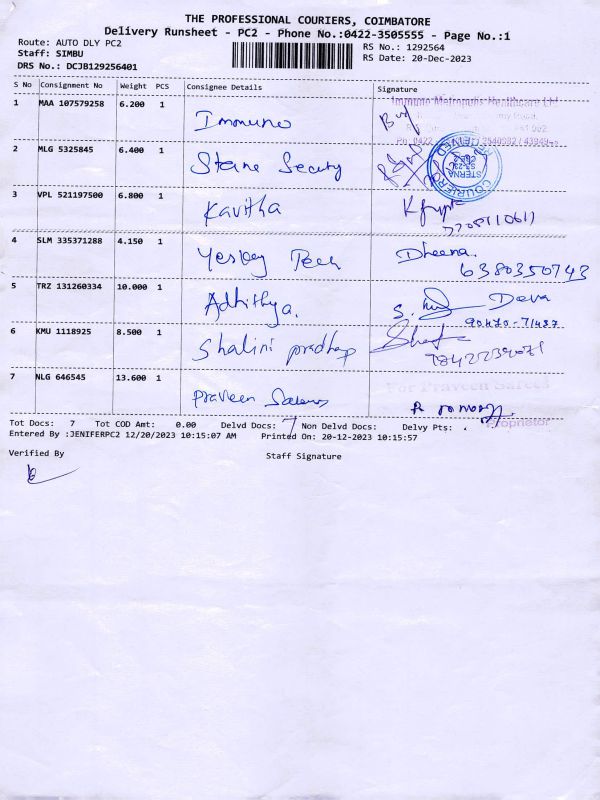 THE PROFESSIONAL COURIERS, COIMBATORE
Delivery Runsheet - PC2 - Phone No.:0422-3505555 - Page No.:1
Route: AUTO DLY PC2
Staff: SIMBU
DRS No.: DCJB129256401
RS No.: 1292564
RS Date: 20-Dec-2023
S No Consignment No Weight PCS Consignee Details Signature
1 MAA 107579258 6.200 1 Immuno
Immuno Metropolis Healthcare Ltd
2 MLG 5325845 6.400 1 Sterne Secuty
COURIER
STERNA
3 VPL 521197500 6.800 1 Kavitha
4 SLM 335371288 4.150 1 Yesbey Tech Dheena.
6380350743
5 TRZ 131260334 10.000 1 Adhithya. S. Deva
90470-71437
6 KMU 1118925 8.500 1 Shalini pradhap
7 NLG 646545 13.600 1 Praveen
For Praveen
Proprietor
Tot Docs: 7 Tot COD Amt: 0.00 Delvd Docs: 7 Non Delvd Docs: Delvy Pts: .
Entered By :JENIFERPC2 12/20/2023 10:15:07 AM Printed On: 20-12-2023 10:15:57
Verified By Staff Signature